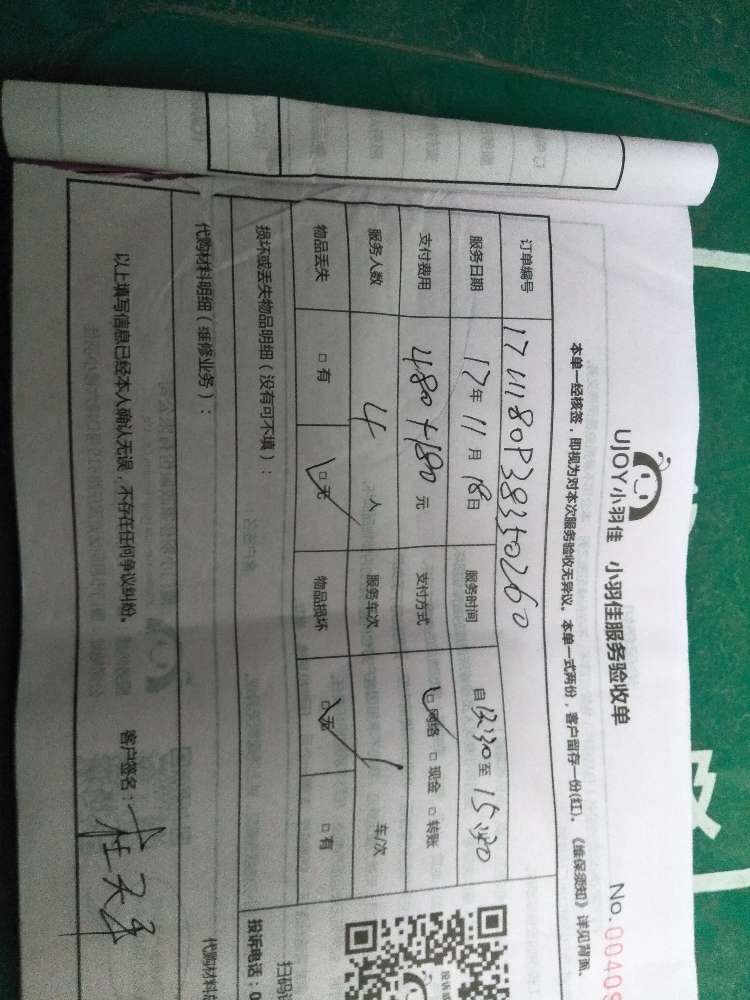 UJOY小羽佳 小羽佳服务验收单
No.00409
本单一经核签，即视为对本次服务验收无异议。本单一式两份，客户留存一份(红)。《维保须知》详见背面。
订单编号 171118OP38350260
服务日期 17年 11月 18日 服务时间 自 13:30 至 15:40
支付费用 480+180 元 支付方式 □网络 □现金 □转账
服务人数 4 人 服务车次 1 车/次
物品丢失 □有 □无 物品损坏 □无 □有
损坏或丢失物品明细（没有可不填）：
代购材料明细（维修业务）：
代购材料
以上填写信息已经本人确认无误，不存在任何争议纠纷。
客户签名：
投诉电话：0